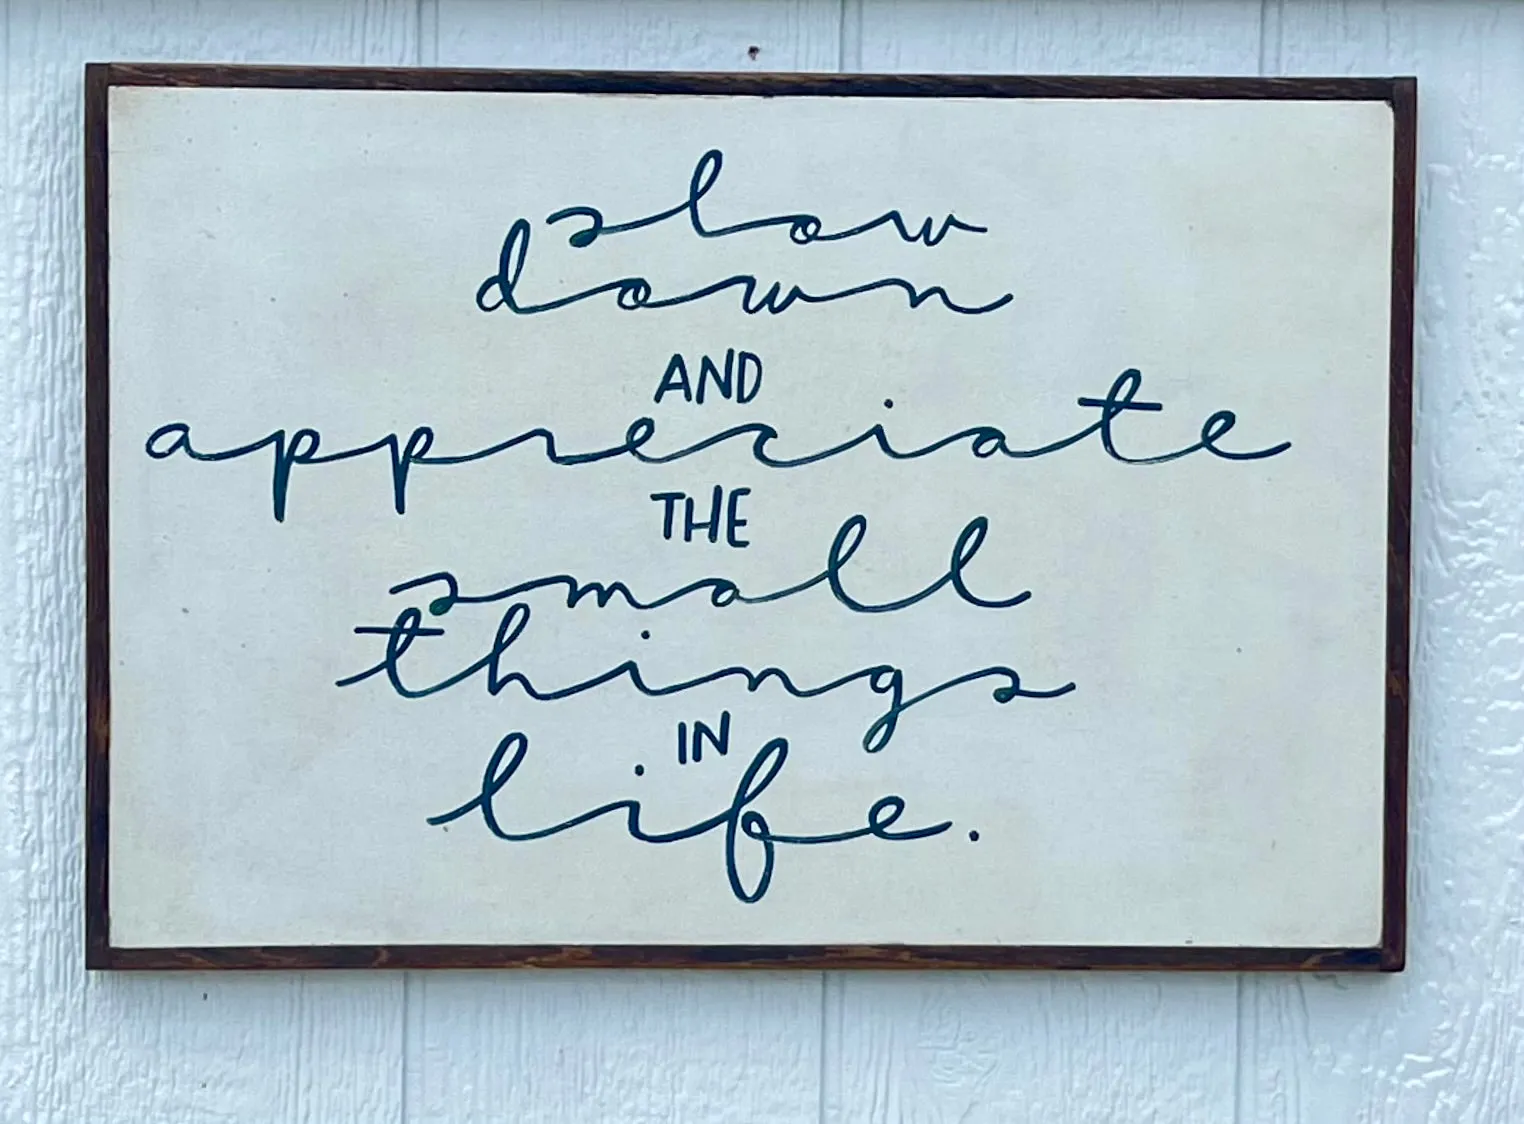 slow
down
AND
appreciate
THE
small
things
IN
life.